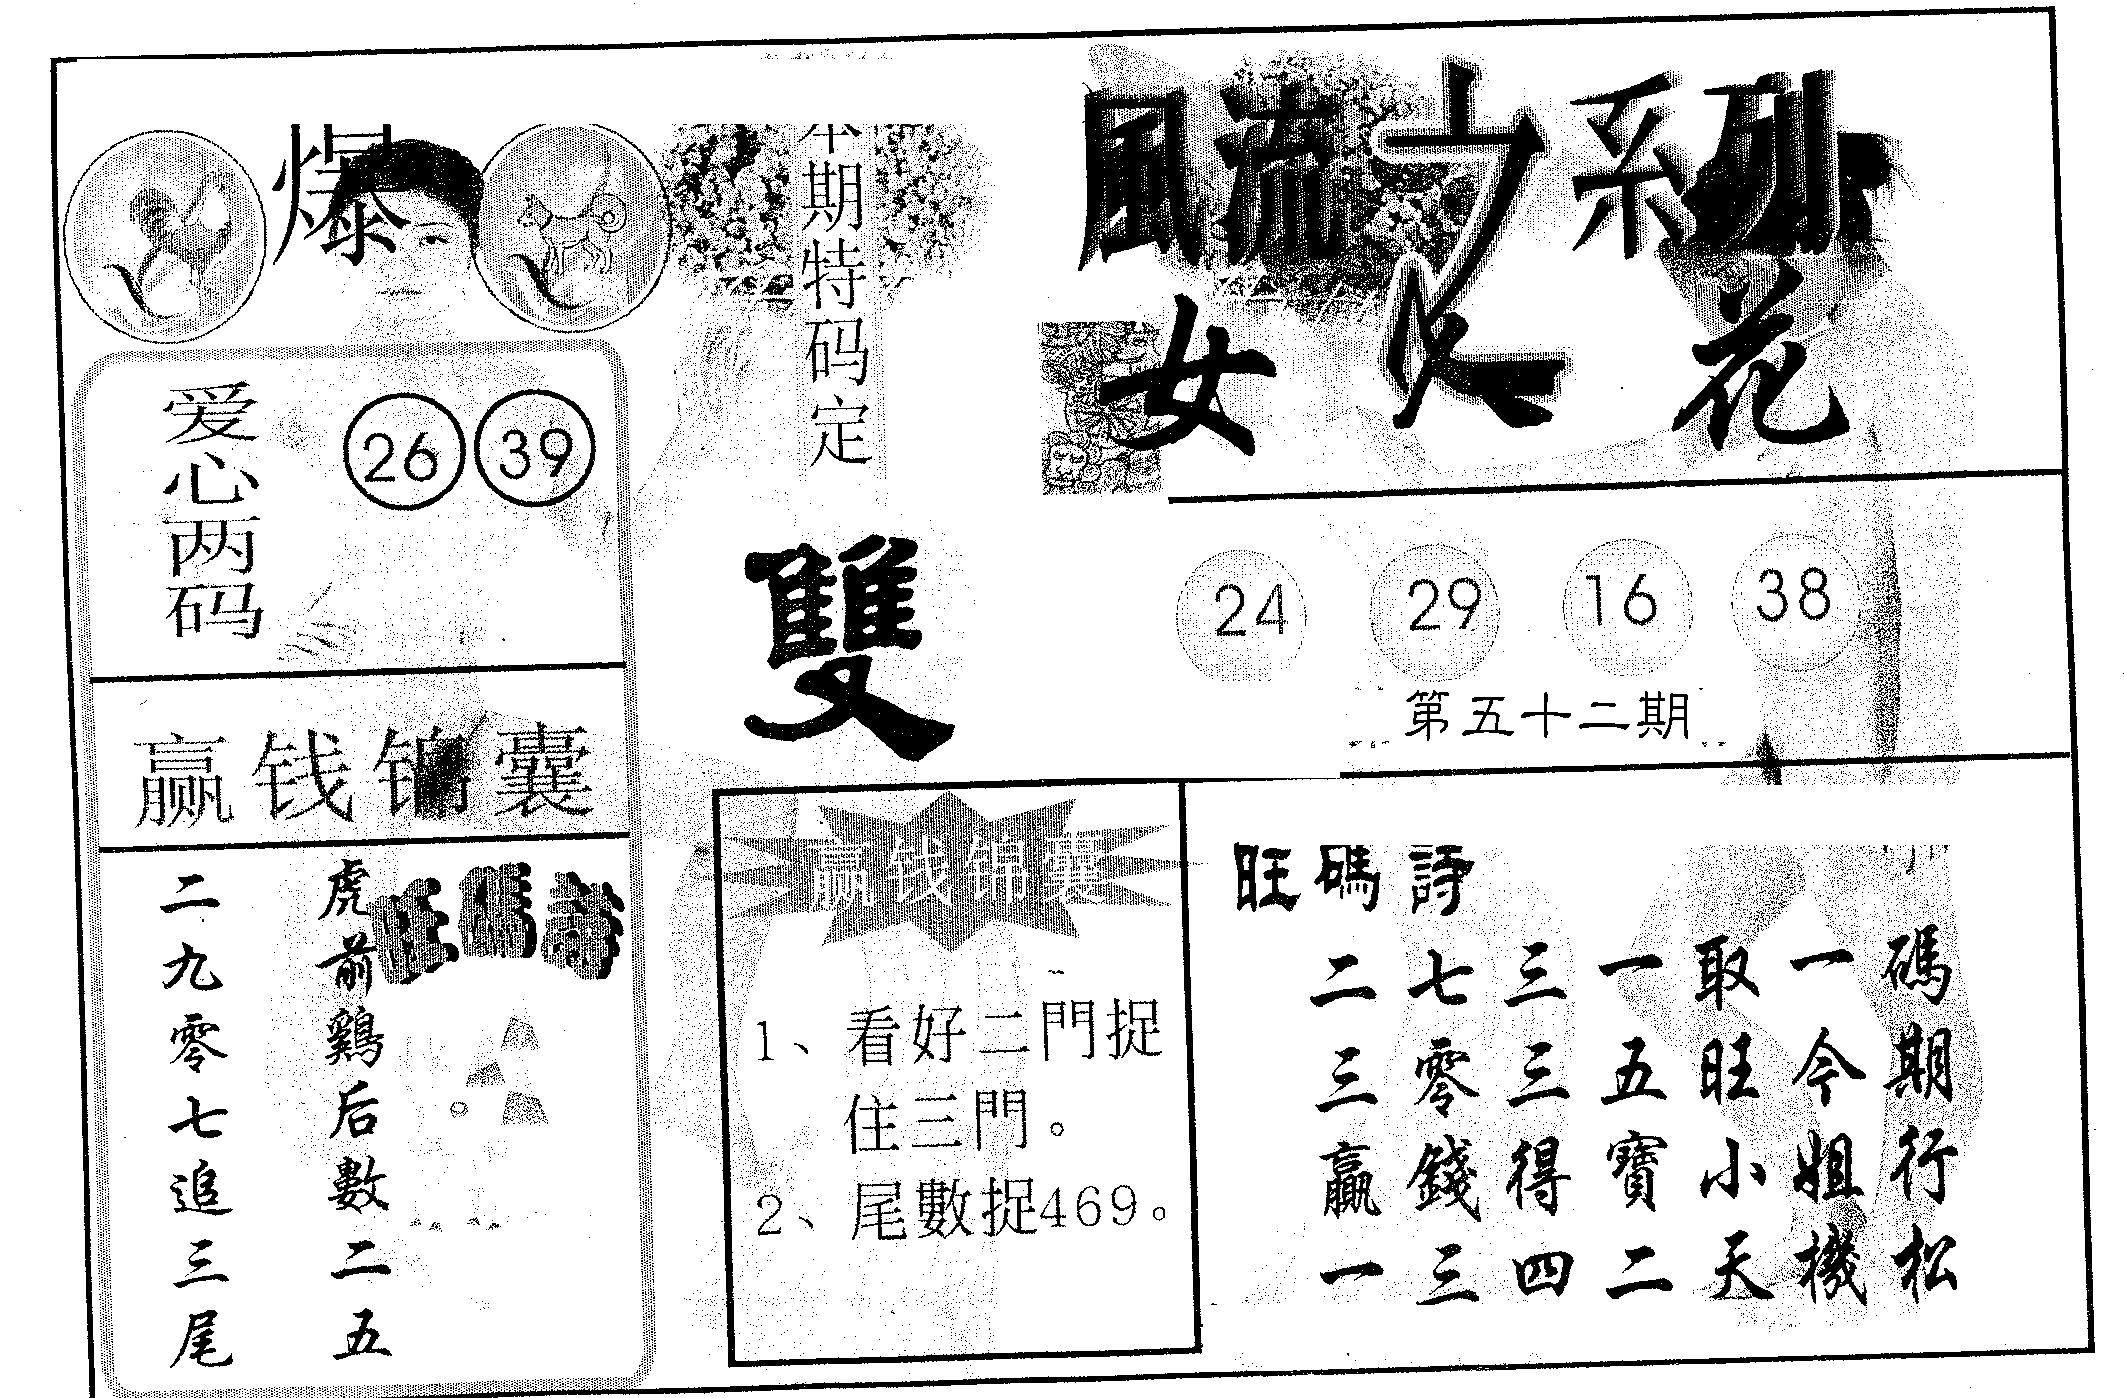 風流女系列
女人花
爆
本期特码定
雙
爱心两码
26 39
24 29 16 38
第五十二期
赢钱锦囊
旺碼詩
虎前鷄后數二五
二九零七追三尾
赢钱锦囊
1、看好二門捉
住三門。
2、尾數捉469。
旺碼詩
二七三一取一碼
三零三五旺今期
贏錢得寶小姐行
一三四二天機松